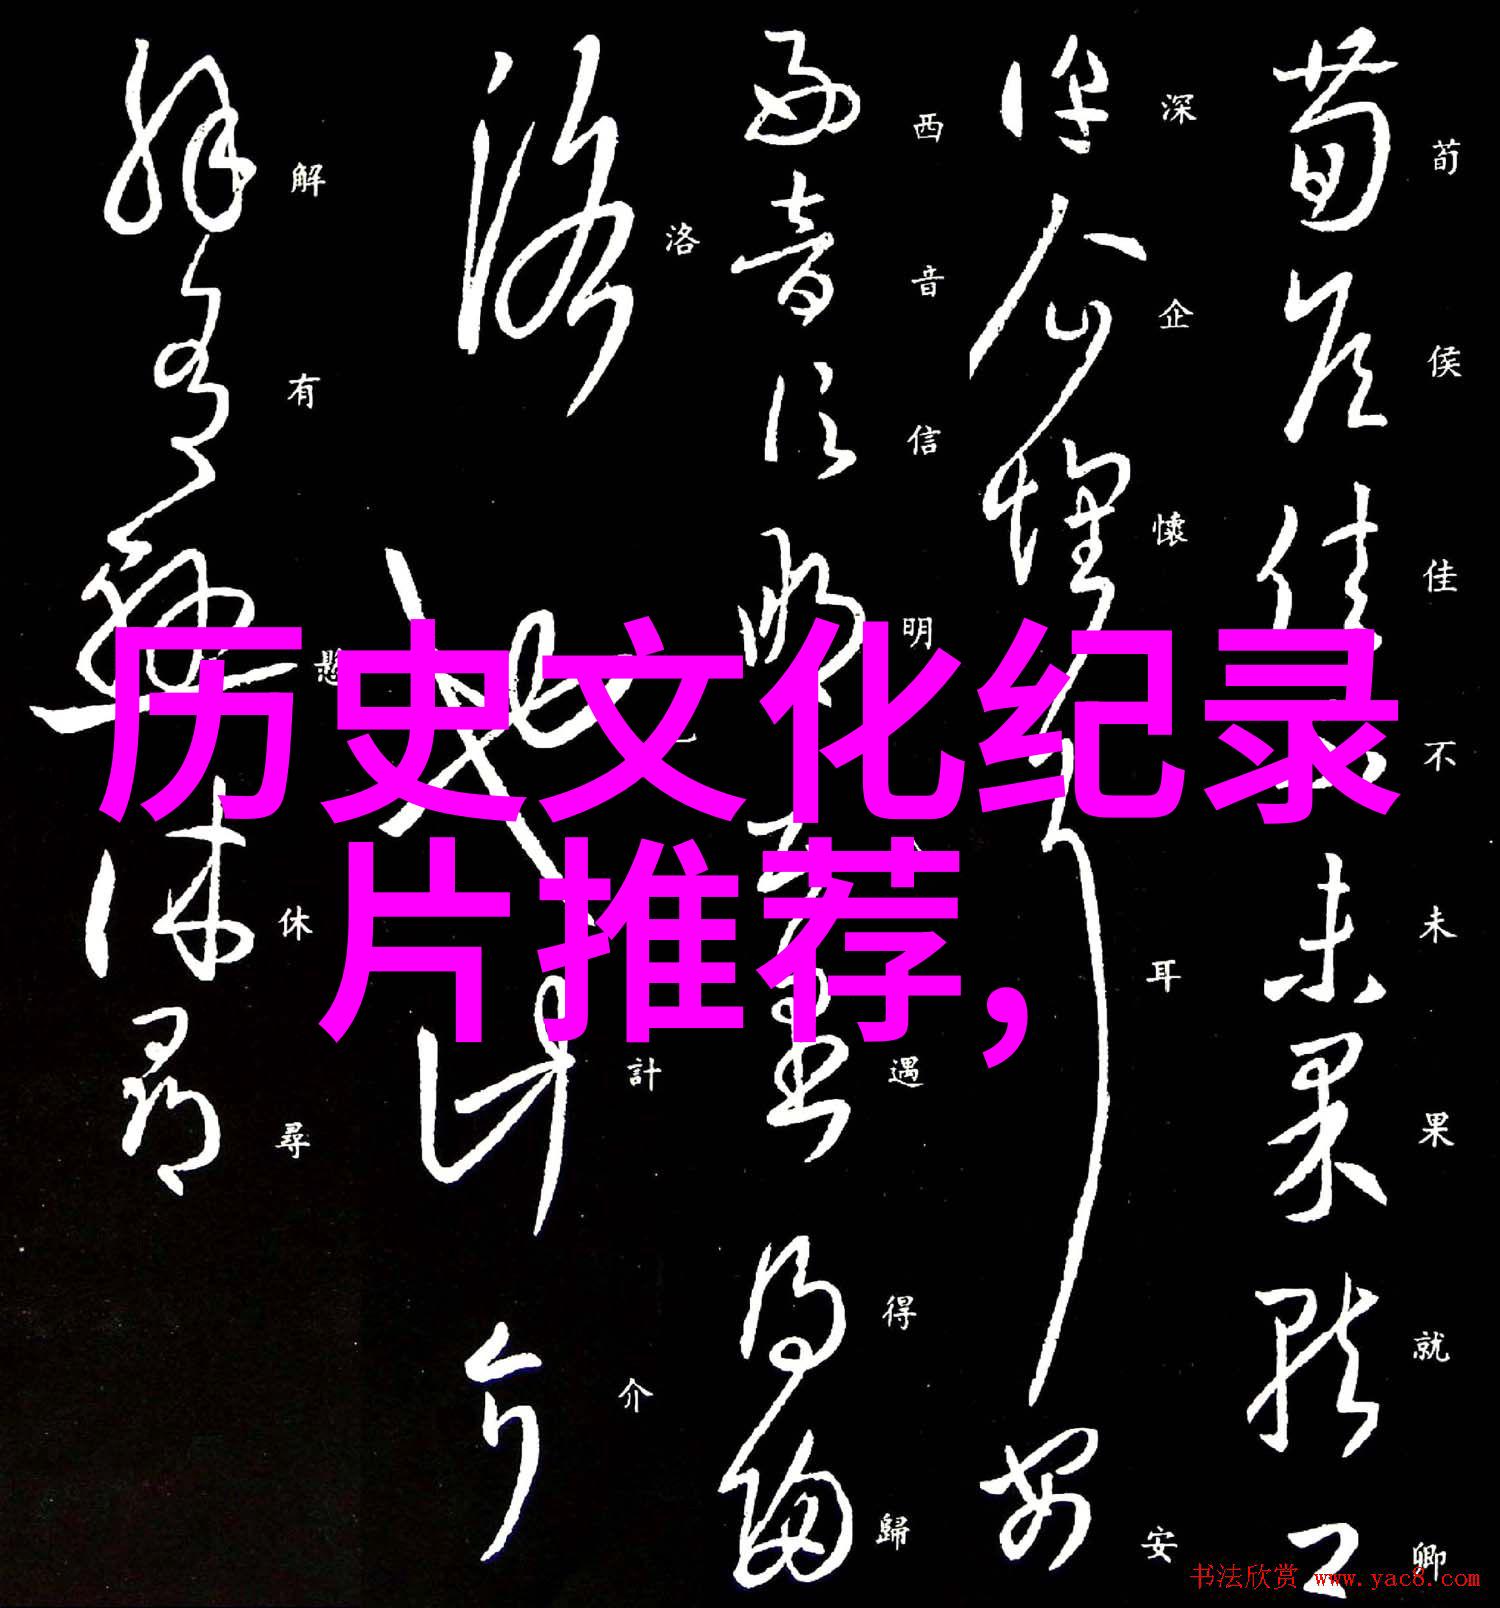 荀侯佳不未果就卿
深企懷耳安
西音信明遇得歸
洛計介
解有懸休尋
历史文化纪录
片推荐，
书法欣赏 www.yac8.com